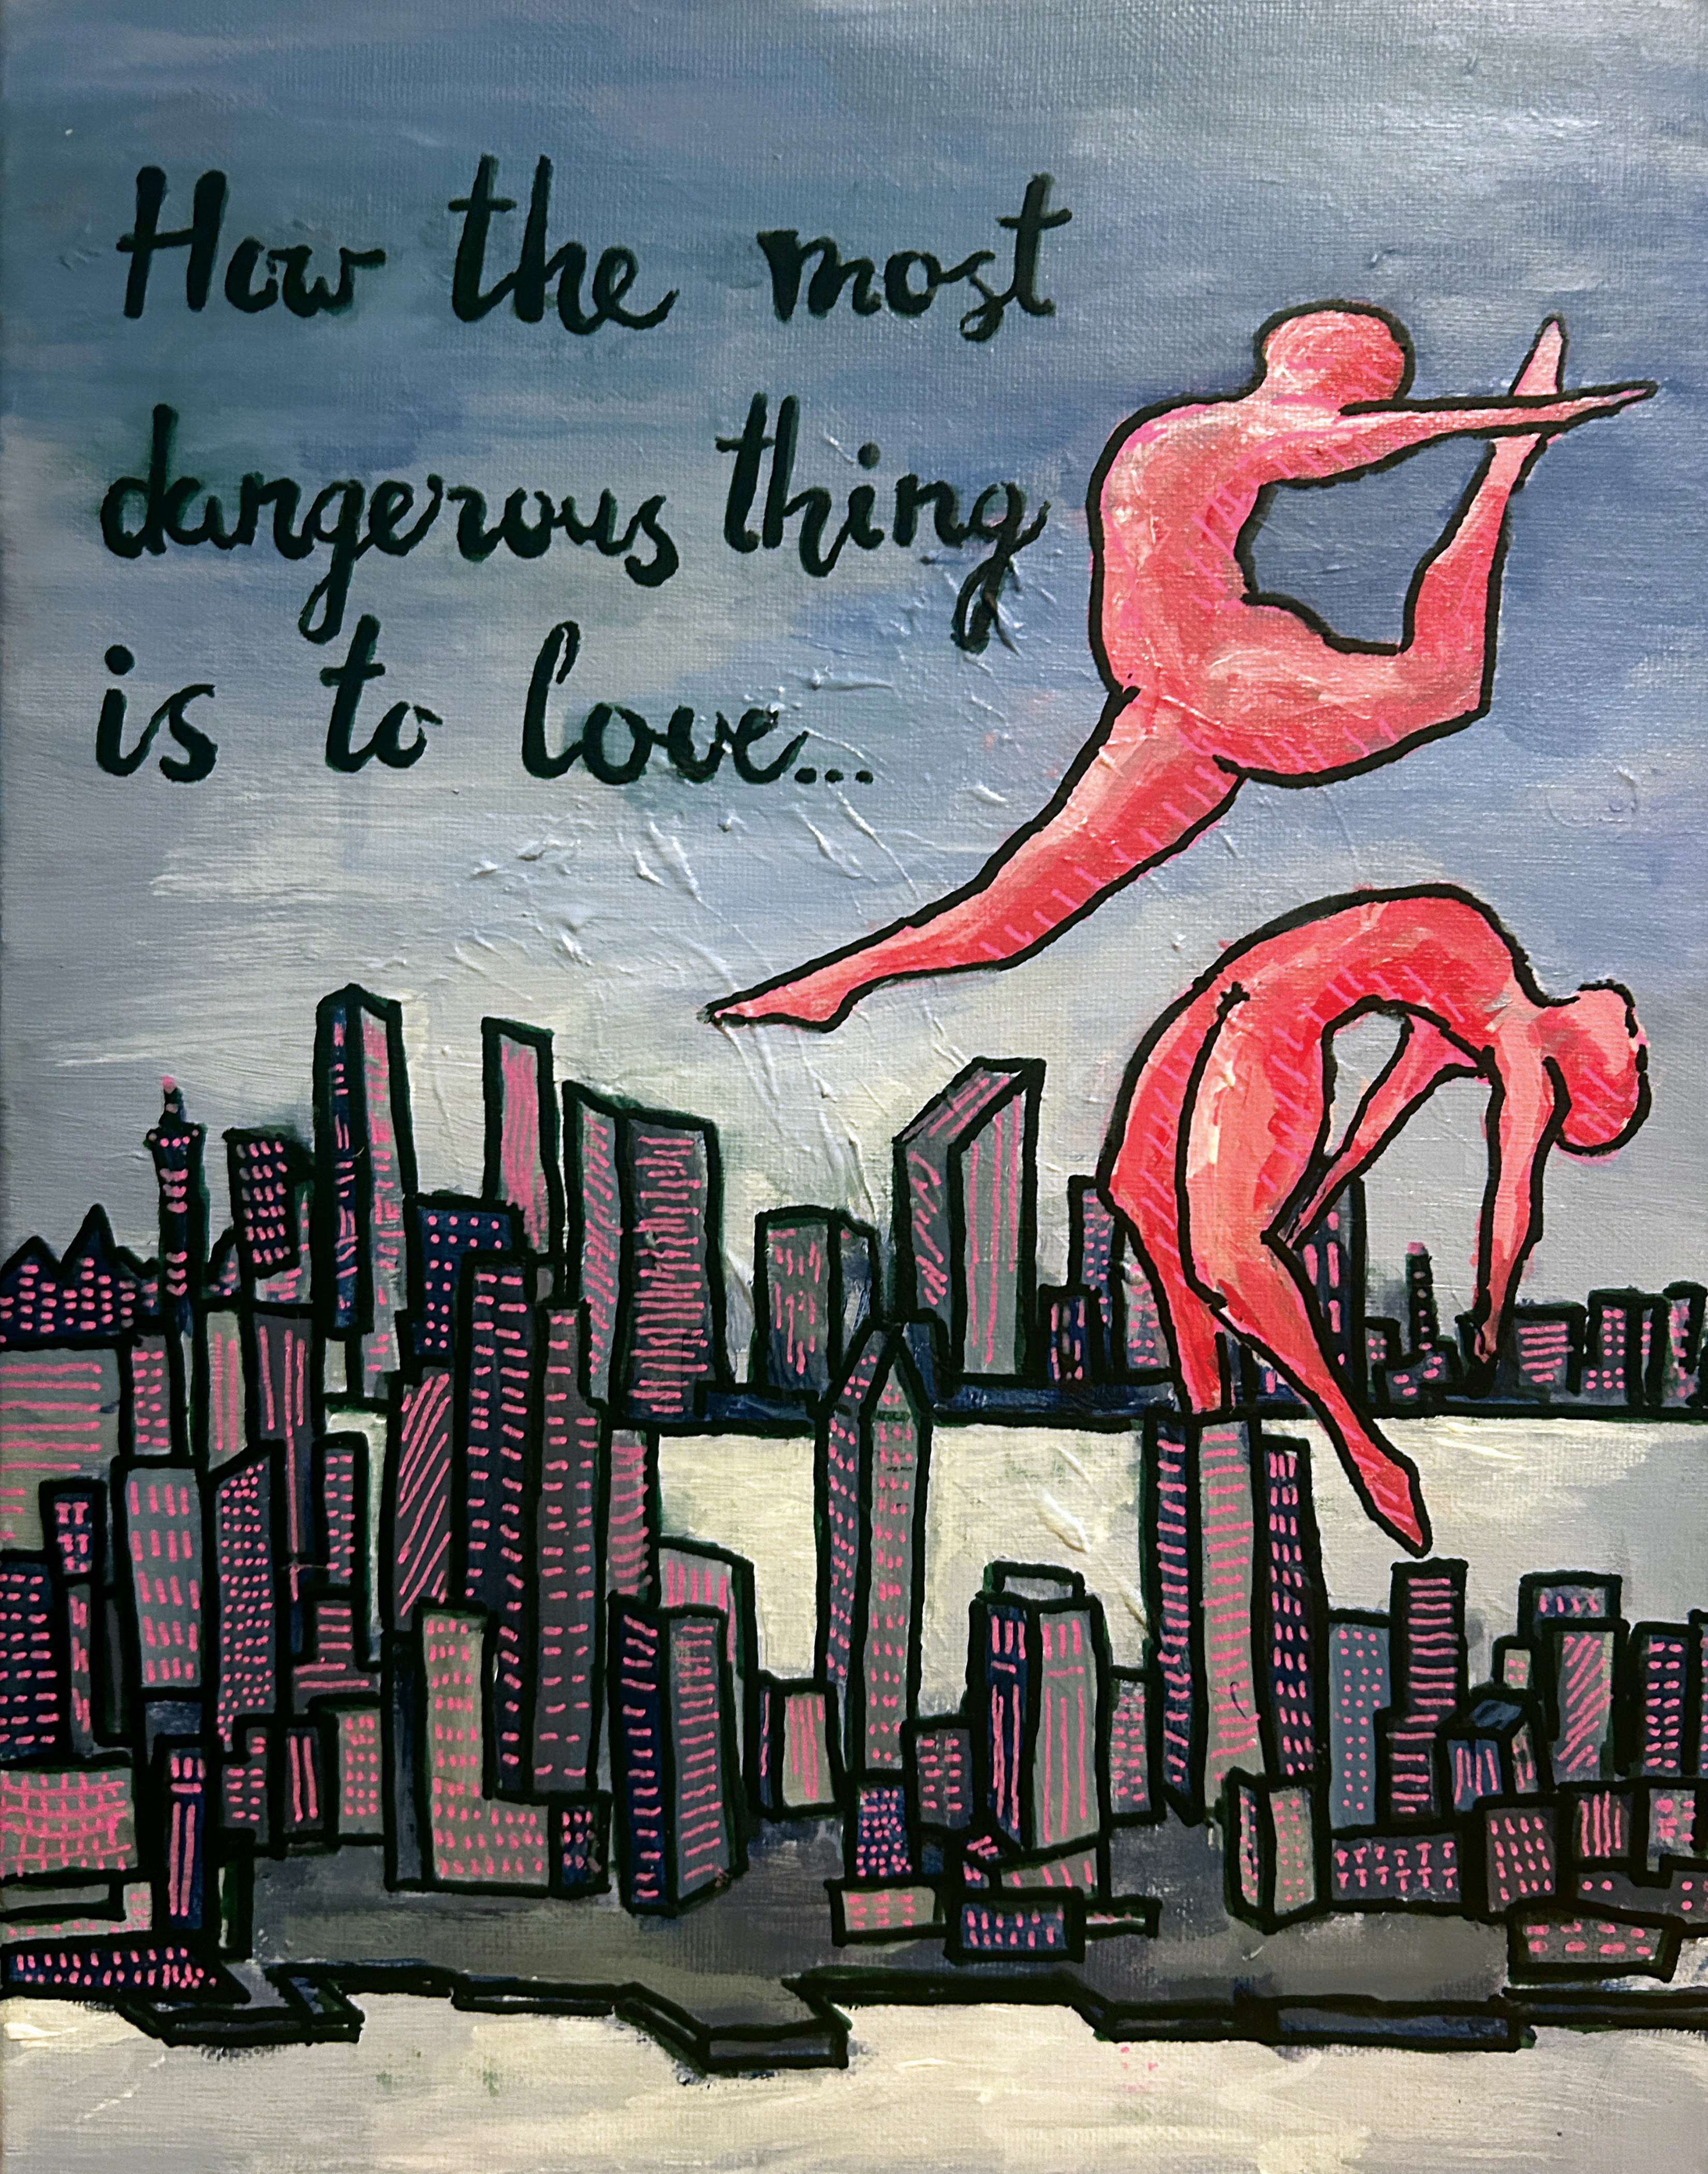 How the most
dangerous thing
is to love...